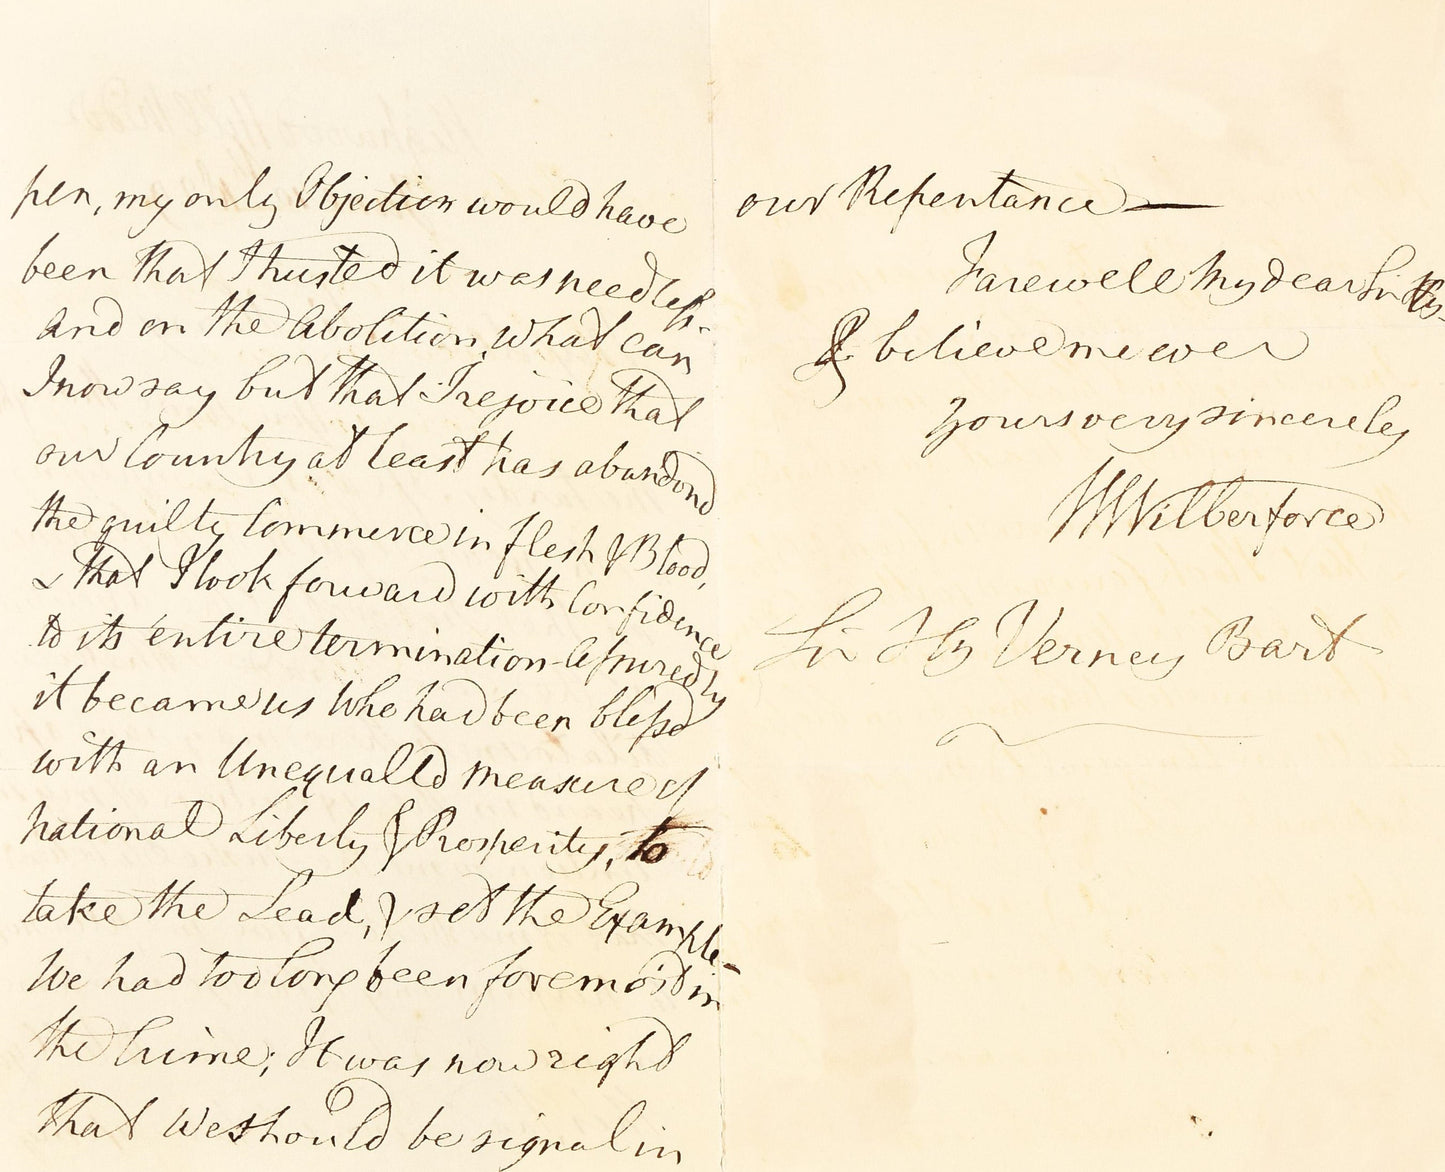 pen, my only Objection would have
been that I trusted it was needless.
And on the Abolition, what can
I now say but that I rejoice that
our Country at least has abandond
the guilty Commerce in flesh & Blood,
& that I look forward with Confidence
to its entire termination - Assuredly
it became us who had been blessd
with an Unequalld measure of
national Liberty & Prosperity, to
take the Lead, & set the Example -
We had too long been foremost in
the Crime; It was now right
that We should be signal in
our Repentance —
Farewell My dear Sir Hy -
& believe me ever
yours very sincerely
W Wilberforce
Sir Hy Verney Bart